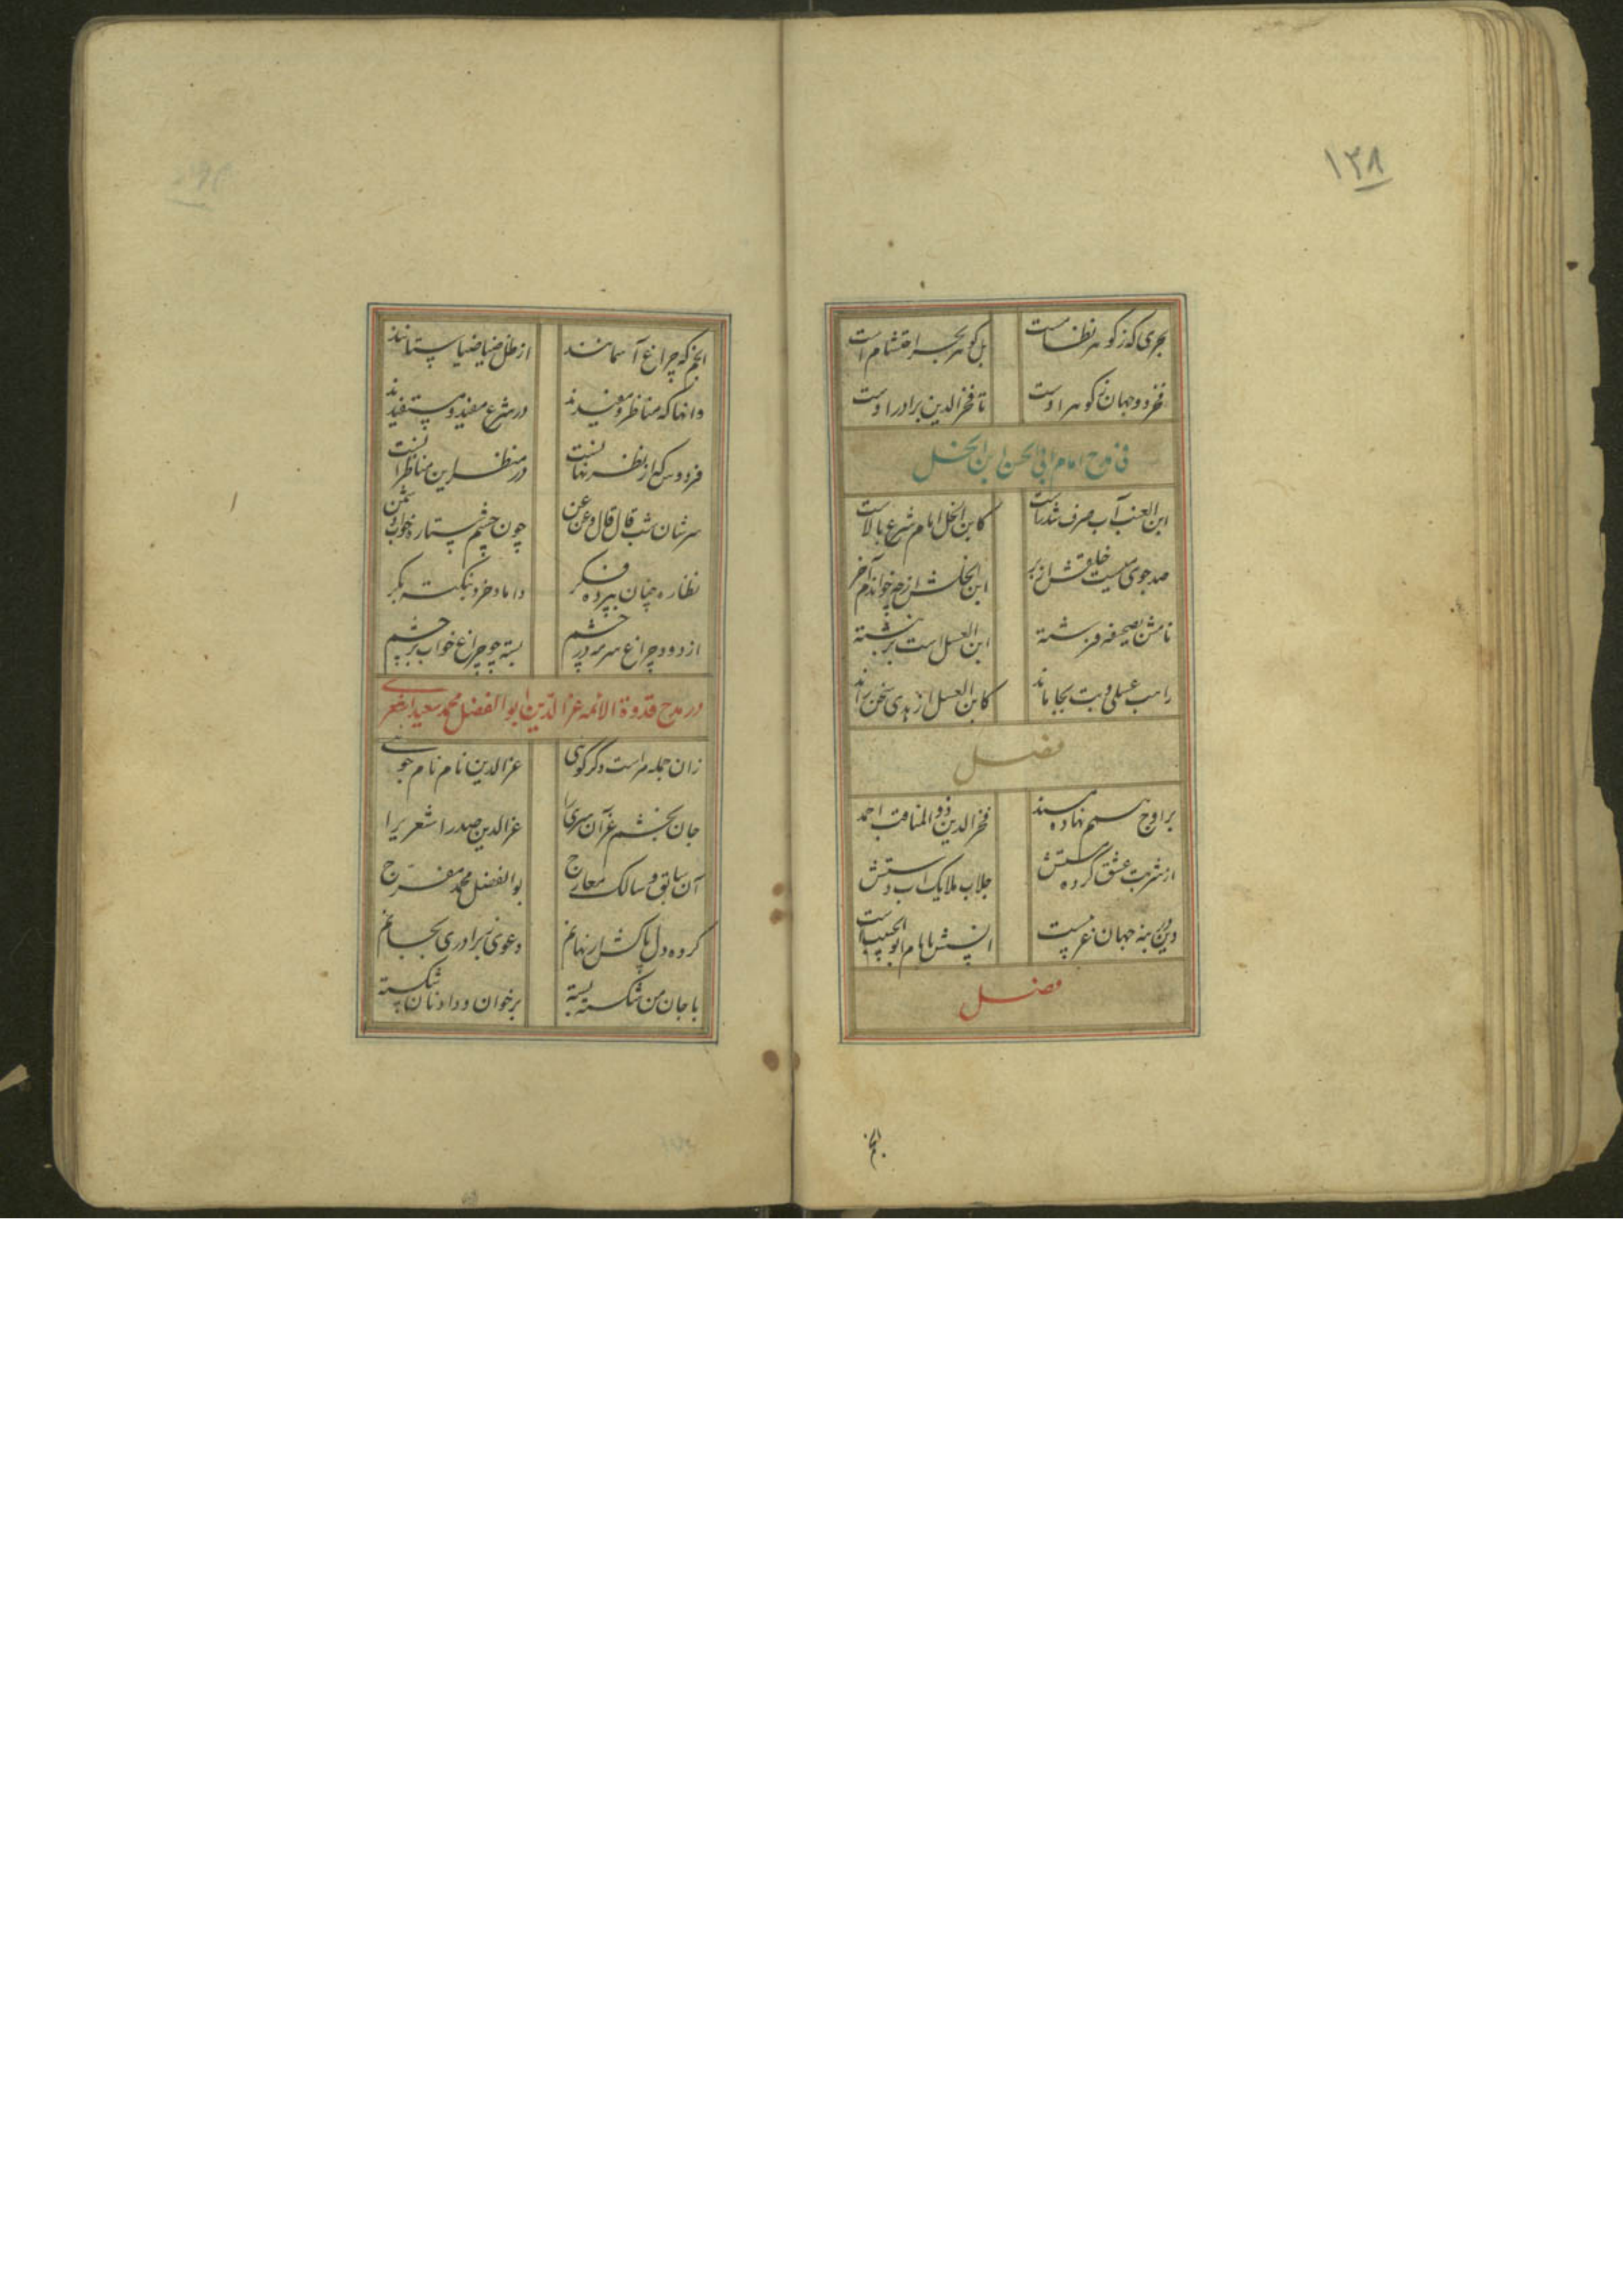 ۱۳۸
بحری که ز گوهر نظام است بل گوهر بحر احتشام است
فخر دو جهان ز گوهر اوست تا فخرالدین برادر اوست
فی مدح امام ابی الحسن ابن الخل
ابن العنب آب صرف شد راست کابن الخل امام شرع بالاست
صد جوی ز خلقش از بر ابن الخلش از چه خواندم آخر
نامش بصحیفه فرشته ابن العسل است بر نبشته
راهب عسلی و بت بجا ماند کابن العسل ایزدی سخن راند
فصل
بر اوج سهم نهاده مسند فخرالدین ذوالمناقب احمد
از شربت عشق کرده مستش جلاب ملایک آب دستش
دین بنه جهان غریب است انسش بامام ابوالحبیب است
فصل
انجم
انجم که چراغ آسمانند از ظل ضیا ضیا ستانند
وانها که مناظر و معیدند در شرع مفید و مستفیدند
فردوس که از نظر نهانست در منظر این مناظرانست
سرشان شب قال قال و عن عن چون چشم ستاره خواب دشمن
نظاره چنان بپرده فکر داماد خرد بنکته بکر
از دود چراغ سرمه در چشم بسته چو چراغ خواب بر چشم
در مدح قدوة الائمه عزالدین ابوالفضل محمد سعید اشعری
زان جمله مراست دگر گوی عزالدین نام نام جوی
جان بخشم عز آن سری را عزالدین صدر اشعری را
آن سابق و سالک معارج بوالفضل محمد مفرج
کرده دل پاکش از نهانم دعوی برادری بجانم
با جان من شکسته بسته برخوان وداد نان شکسته